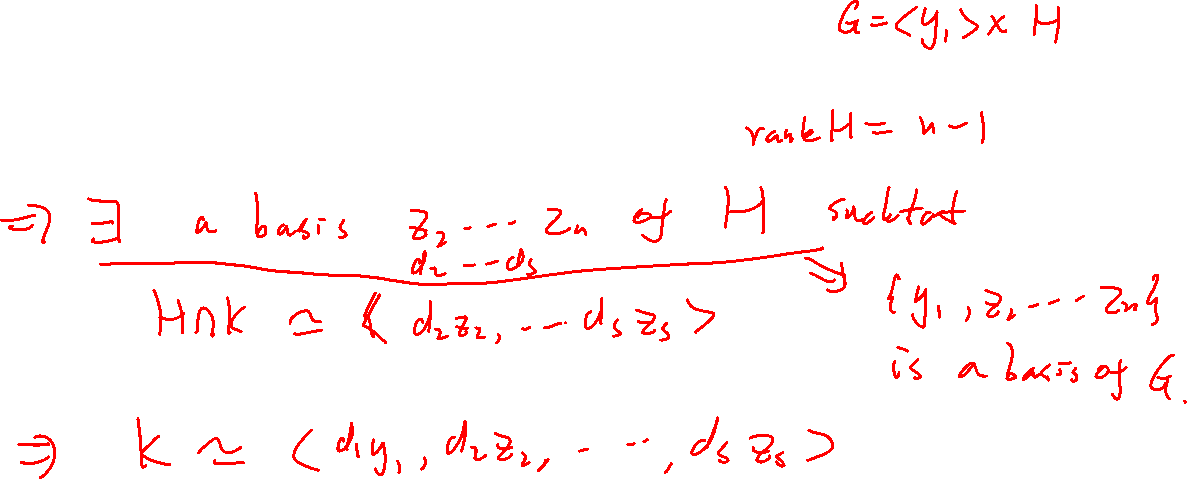 G = <y₁> x H
rank H = n-1
⇒ ∃ a basis z₂ ... zₙ of H such that
d₂ ... dₛ
H∩K ≃ < d₂z₂, ... dₛzₛ >
⇒ {y₁, z₂ ... zₙ}
is a basis of G.
⇒ K ≃ < d₁y₁, d₂z₂, ..., dₛzₛ >